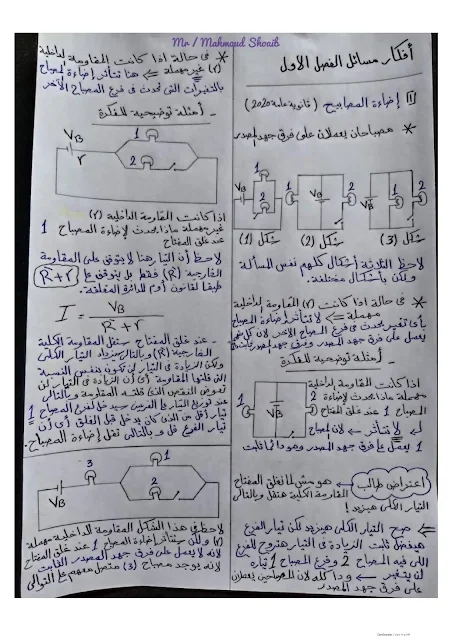 Mr / Mahmoud Shoaib
أفكار مسائل الفصل الأول
1 إضاءة المصابيح (ثانوية عامة 2020)
* مصباحان يعملان على فرق جهد المصدر
VB
1
2
VB
1
2
VB
1
2
شكل (1)
شكل (2)
شكل (3)
لاحظ الثلاثة أشكال كلهم نفس المسألة
ولكن بأشكال مختلفة.
* فى حالة اذا كانت (r) المقاومة الداخلية
مهملة ⇐ لا تتأثر إضاءة المصباح
بأى تغير يحدث فى فرع المصباح الآخر لأن كل
يعمل على فرق جهد المصدر وفرق جهد المصدر ثابت
- أمثلة توضيحية للفكرة
VB
1
2
اذا كانت المقاومة الداخلية
مهملة ماذا يحدث لإضاءة
المصباح 1 عند غلق المفتاح
لا تتأثر ⇐ لأن المصباح
1 يعمل على فرق جهد المصدر وهو دائما ثابت
اعتراض طالب
هو مش لما نغلق المفتاح
المقاومة الكلية هتقل وبالتالى
التيار الكلى هيزيد!
⇐ صح التيار الكلى هيزيد لكن تيار الفرع
هيفضل ثابت الزيادة فى التيار هتروح للفرع
اللى فيه المصباح 2 وفرع المصباح 1 تياره
لن يتغير ⇐ ودا كله لان المصباحين يعملان
على فرق جهد المصدر
* فى حالة اذا كانت المقاومة الداخلية
(r) غير مهملة ⇐ هنا تتأثر إضاءة المصباح
بالتغيرات التى تحدث فى فرع المصباح الآخر
- أمثلة توضيحية للفكرة
VB
r
1
2
اذا كانت المقاومة الداخلية (r)
غير مهملة ماذا يحدث لإضاءة المصباح 1
عند غلق المفتاح
لاحظ أن التيار هنا لا يتوقف على المقاومة
الخارجية (R) فقط بل يتوقف على R+r
طبقا لقانون أوم للدائرة المغلقة.
I = VB / R + r
- عند غلق المفتاح ستقل المقاومة الكلية
الخارجية (R) وبالتالى سيزداد التيار الكلى
ولكن الزيادة فى التيار لن تكون بنفس النسبة
التى قلتها المقاومة أى أن الزيادة فى التيار لن
تعوض النقص الذى قلته المقاومة وبالتالى
عند توزيع التيار على الفرعين سيدخل لفرع المصباح 1
تيار أقل من الذى كان يدخل قبل الغلق أى أن
تيار الفرع قل وبالتالى تقل إضاءة المصباح.
VB
3
1
2
لاحظ فى هذا الشكل المقاومة الداخلية مهملة
(r) ولكن ستتأثر إضاءة المصباح 1 عند غلق المفتاح
لانه لا يعمل على فرق جهد المصدر الثابت
لانه يوجد مصباح (3) متصل معهم على التوالى